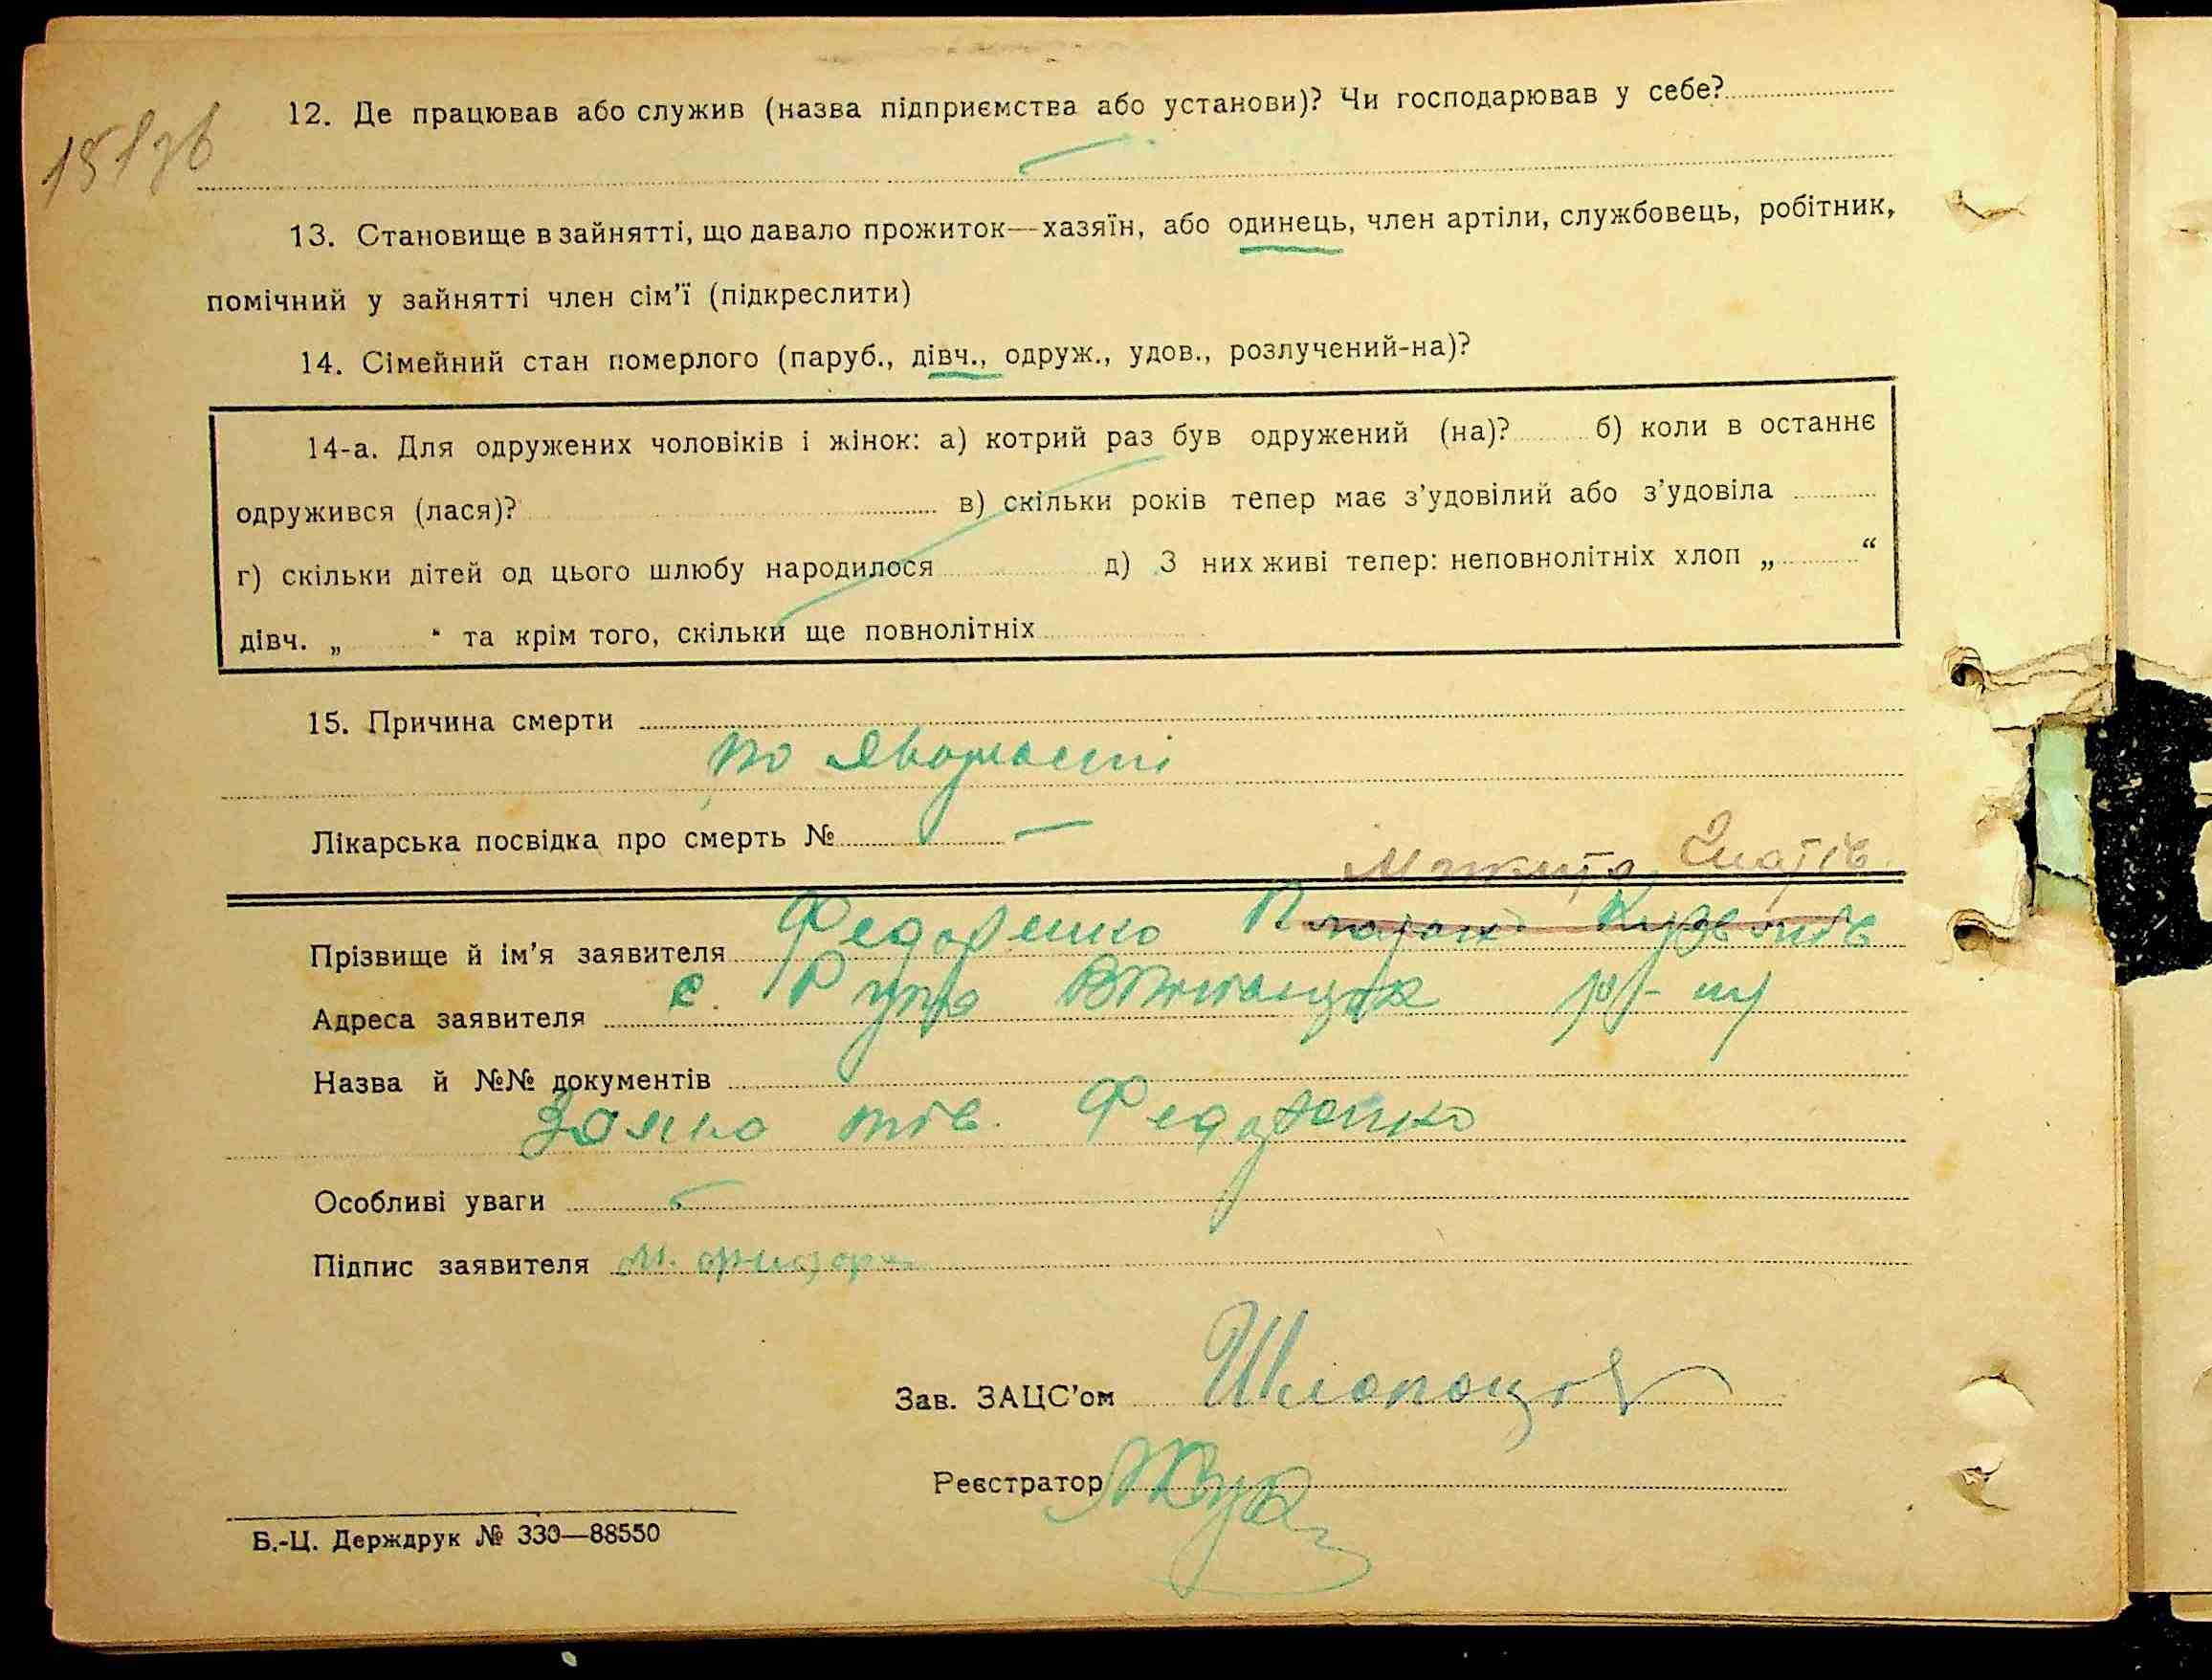 151зв
12. Де працював або служив (назва підприємства або установи)? Чи господарював у себе?
13. Становище в зайнятті, що давало прожиток—хазяїн, або одинець, член артіли, службовець, робітник,
помічний у зайнятті член сім’ї (підкреслити)
14. Сімейний стан померлого (паруб., дівч., одруж., удов., розлучений-на)?
14-а. Для одружених чоловіків і жінок: а) котрий раз був одружений (на)? б) коли в останнє
одружився (лася)? в) скільки років тепер має з’удовілий або з’удовіла
г) скільки дітей од цього шлюбу народилося д) З них живі тепер: неповнолітніх хлоп „ “
дівч. „ “ та крім того, скільки ще повнолітніх
15. Причина смерти
по
Лікарська посвідка про смерть №
Прізвище й ім’я заявителя Федоренко
Адреса заявителя с.
Назва й №№ документів
тів. Федоренко
Особливі уваги
Підпис заявителя
Зав. ЗАЦС’ом
Реєстратор
Б.-Ц. Держдрук № 330—88550